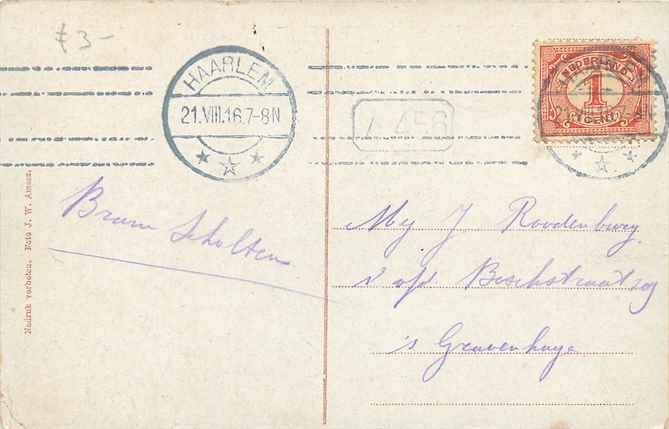 £ 3-
HAARLEM
21.VIII.16.7-8N
NEDERLAND
1
CENT
Bram Scholten
Mej J. Roodenburg
's Gravenhage
Nadruk verboden. Foto J. W.